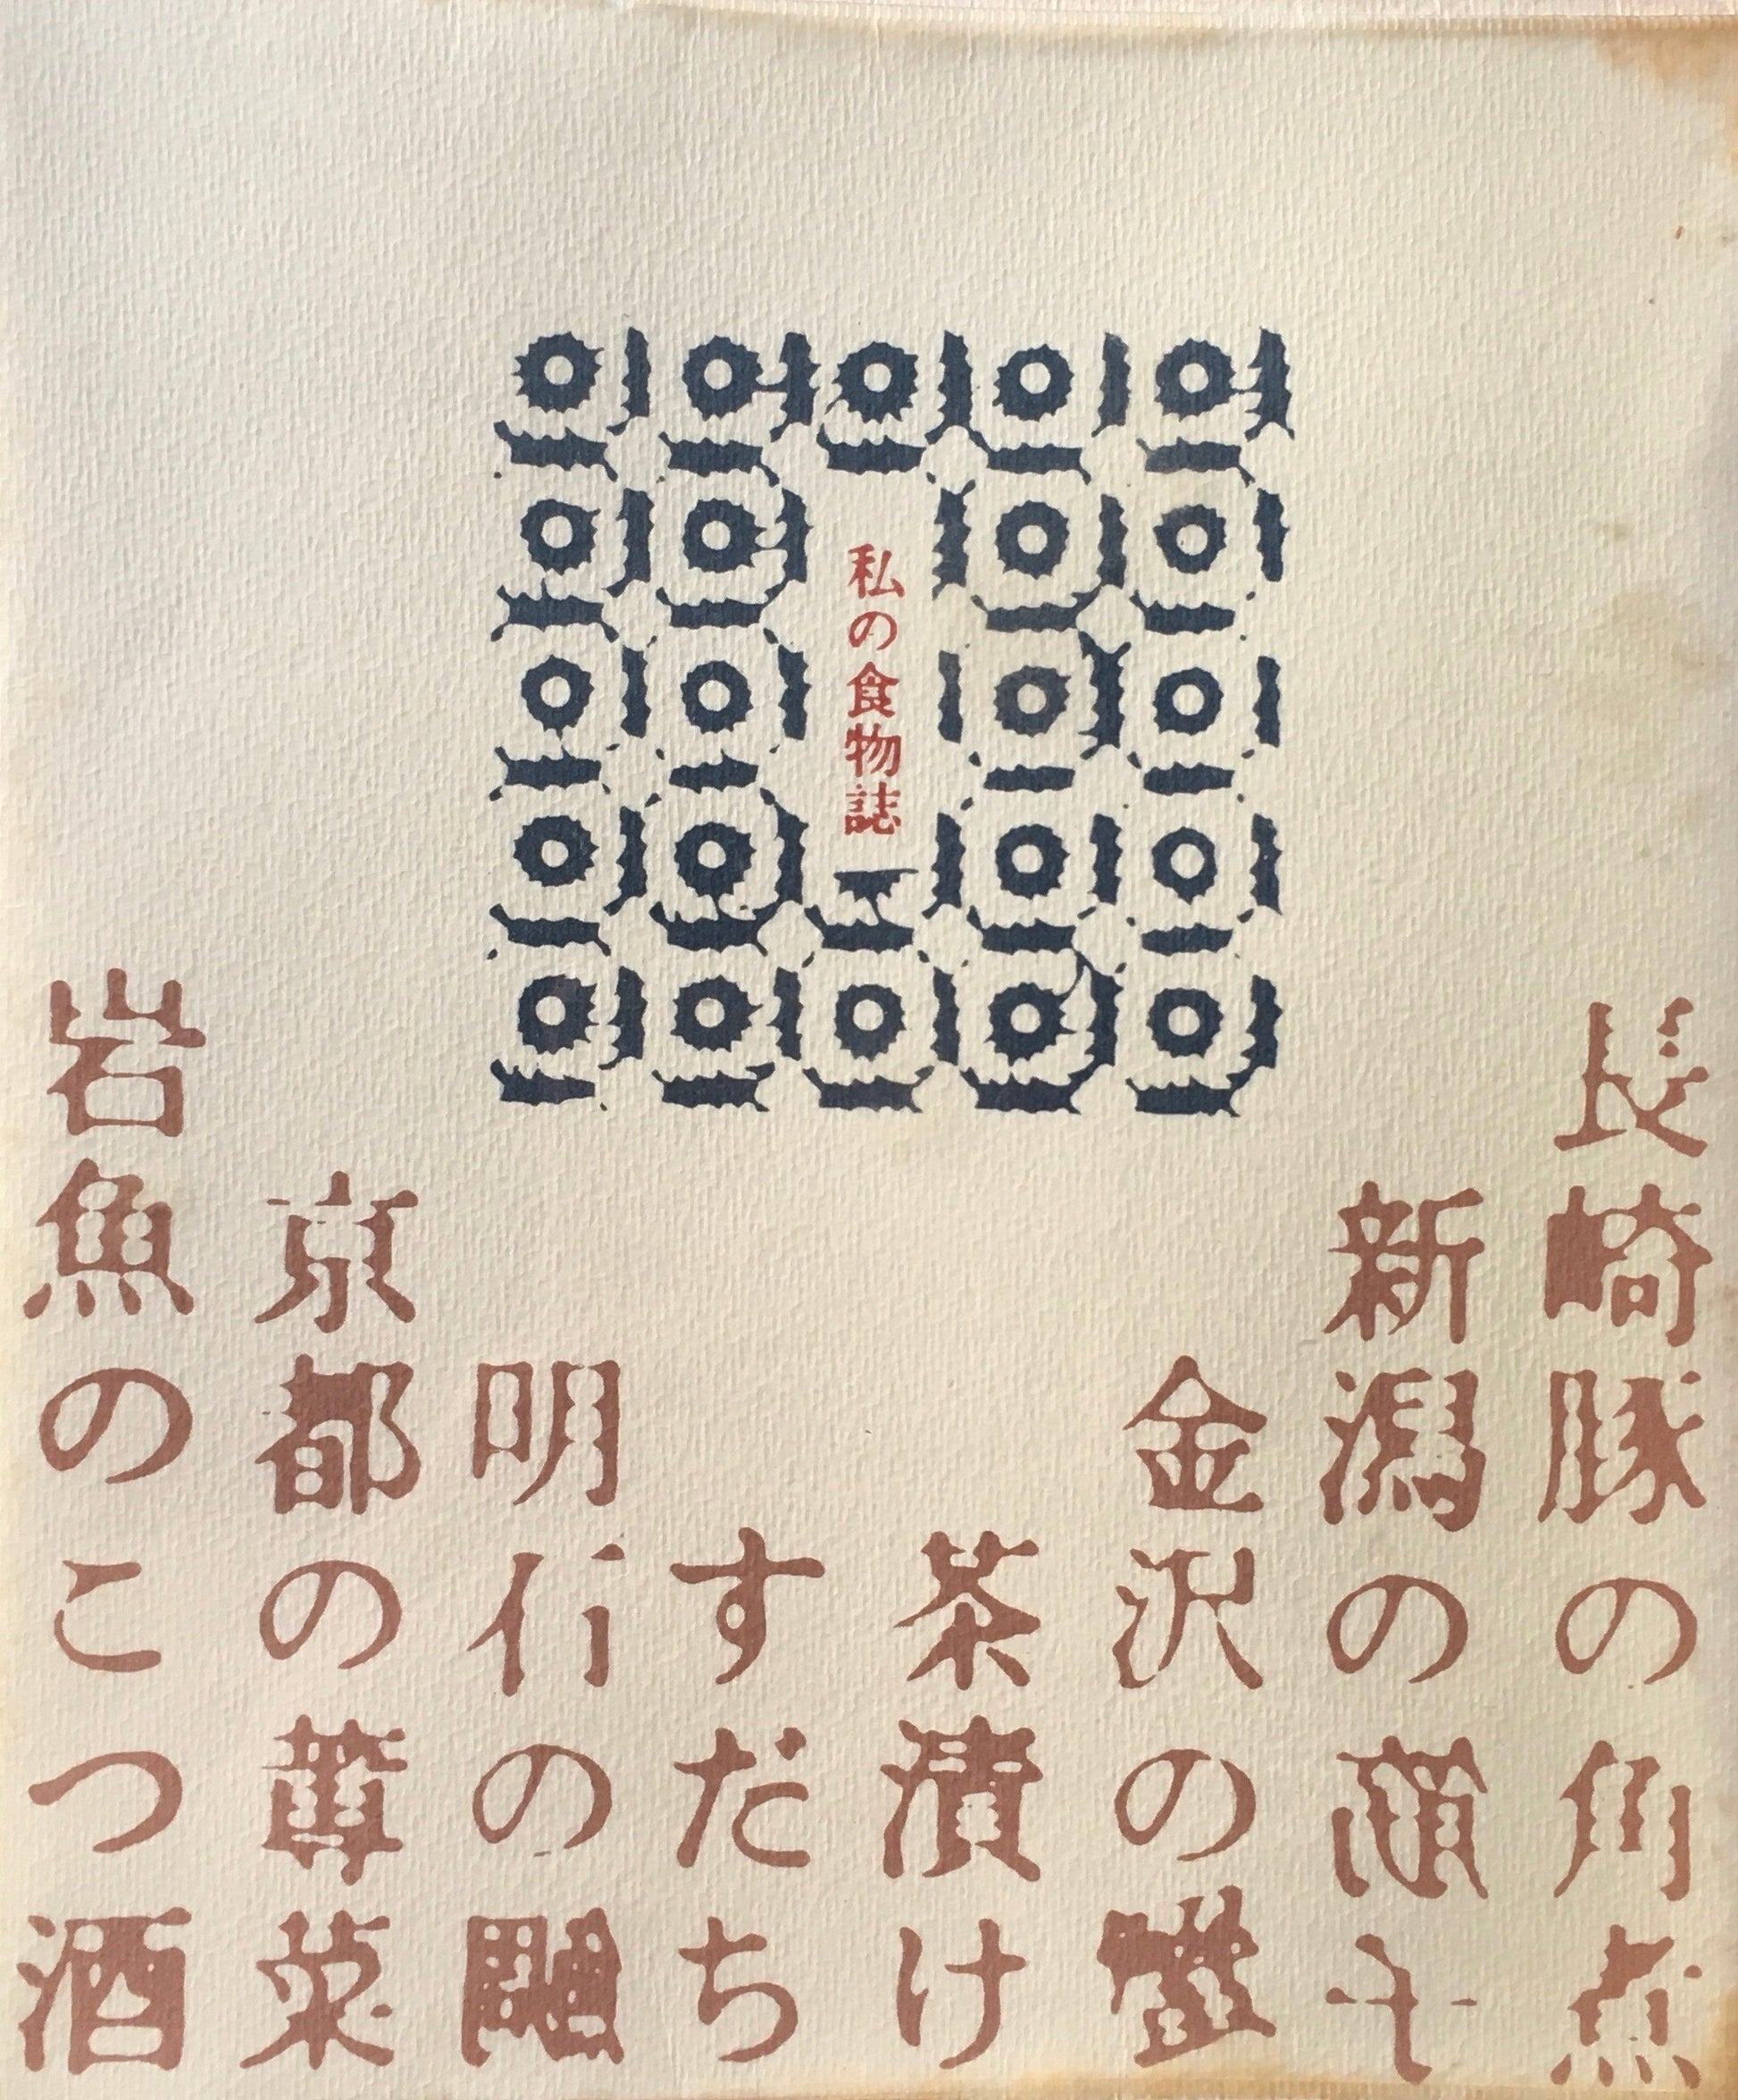 私の食物誌
長崎豚の角煮
新潟の筋子
金沢の蟹
茶漬け
すだち
明石の鯛
京都の蓴菜
岩魚のこつ酒